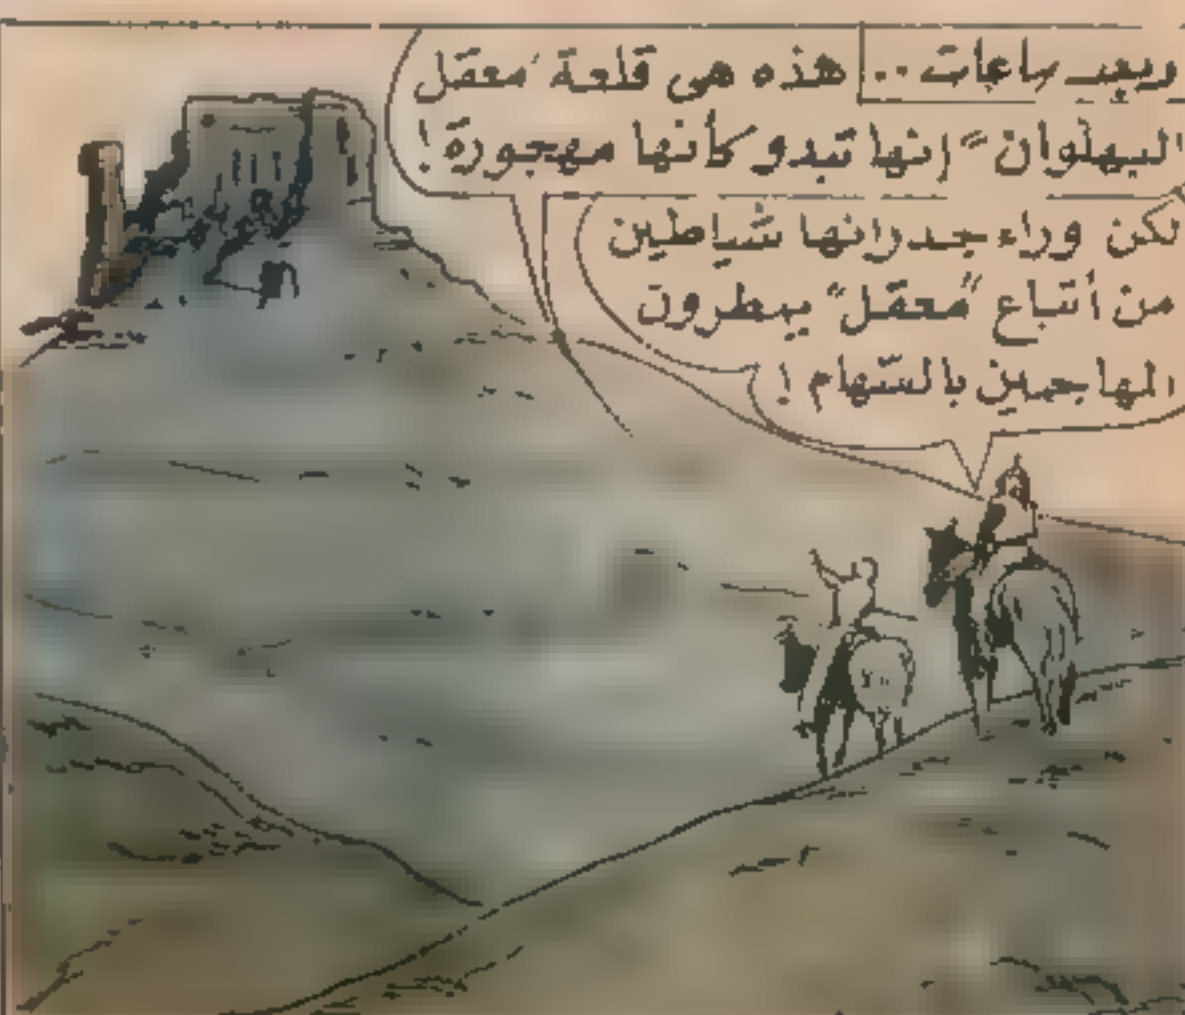 وبعد ساعات..
هذه هى قلعة "معقل
البهلوان" إنها تبدو كأنها مهجورة!
لكن وراء جدرانها شياطين
من أتباع "معقل" يمطرون
المهاجمين بالسهام!